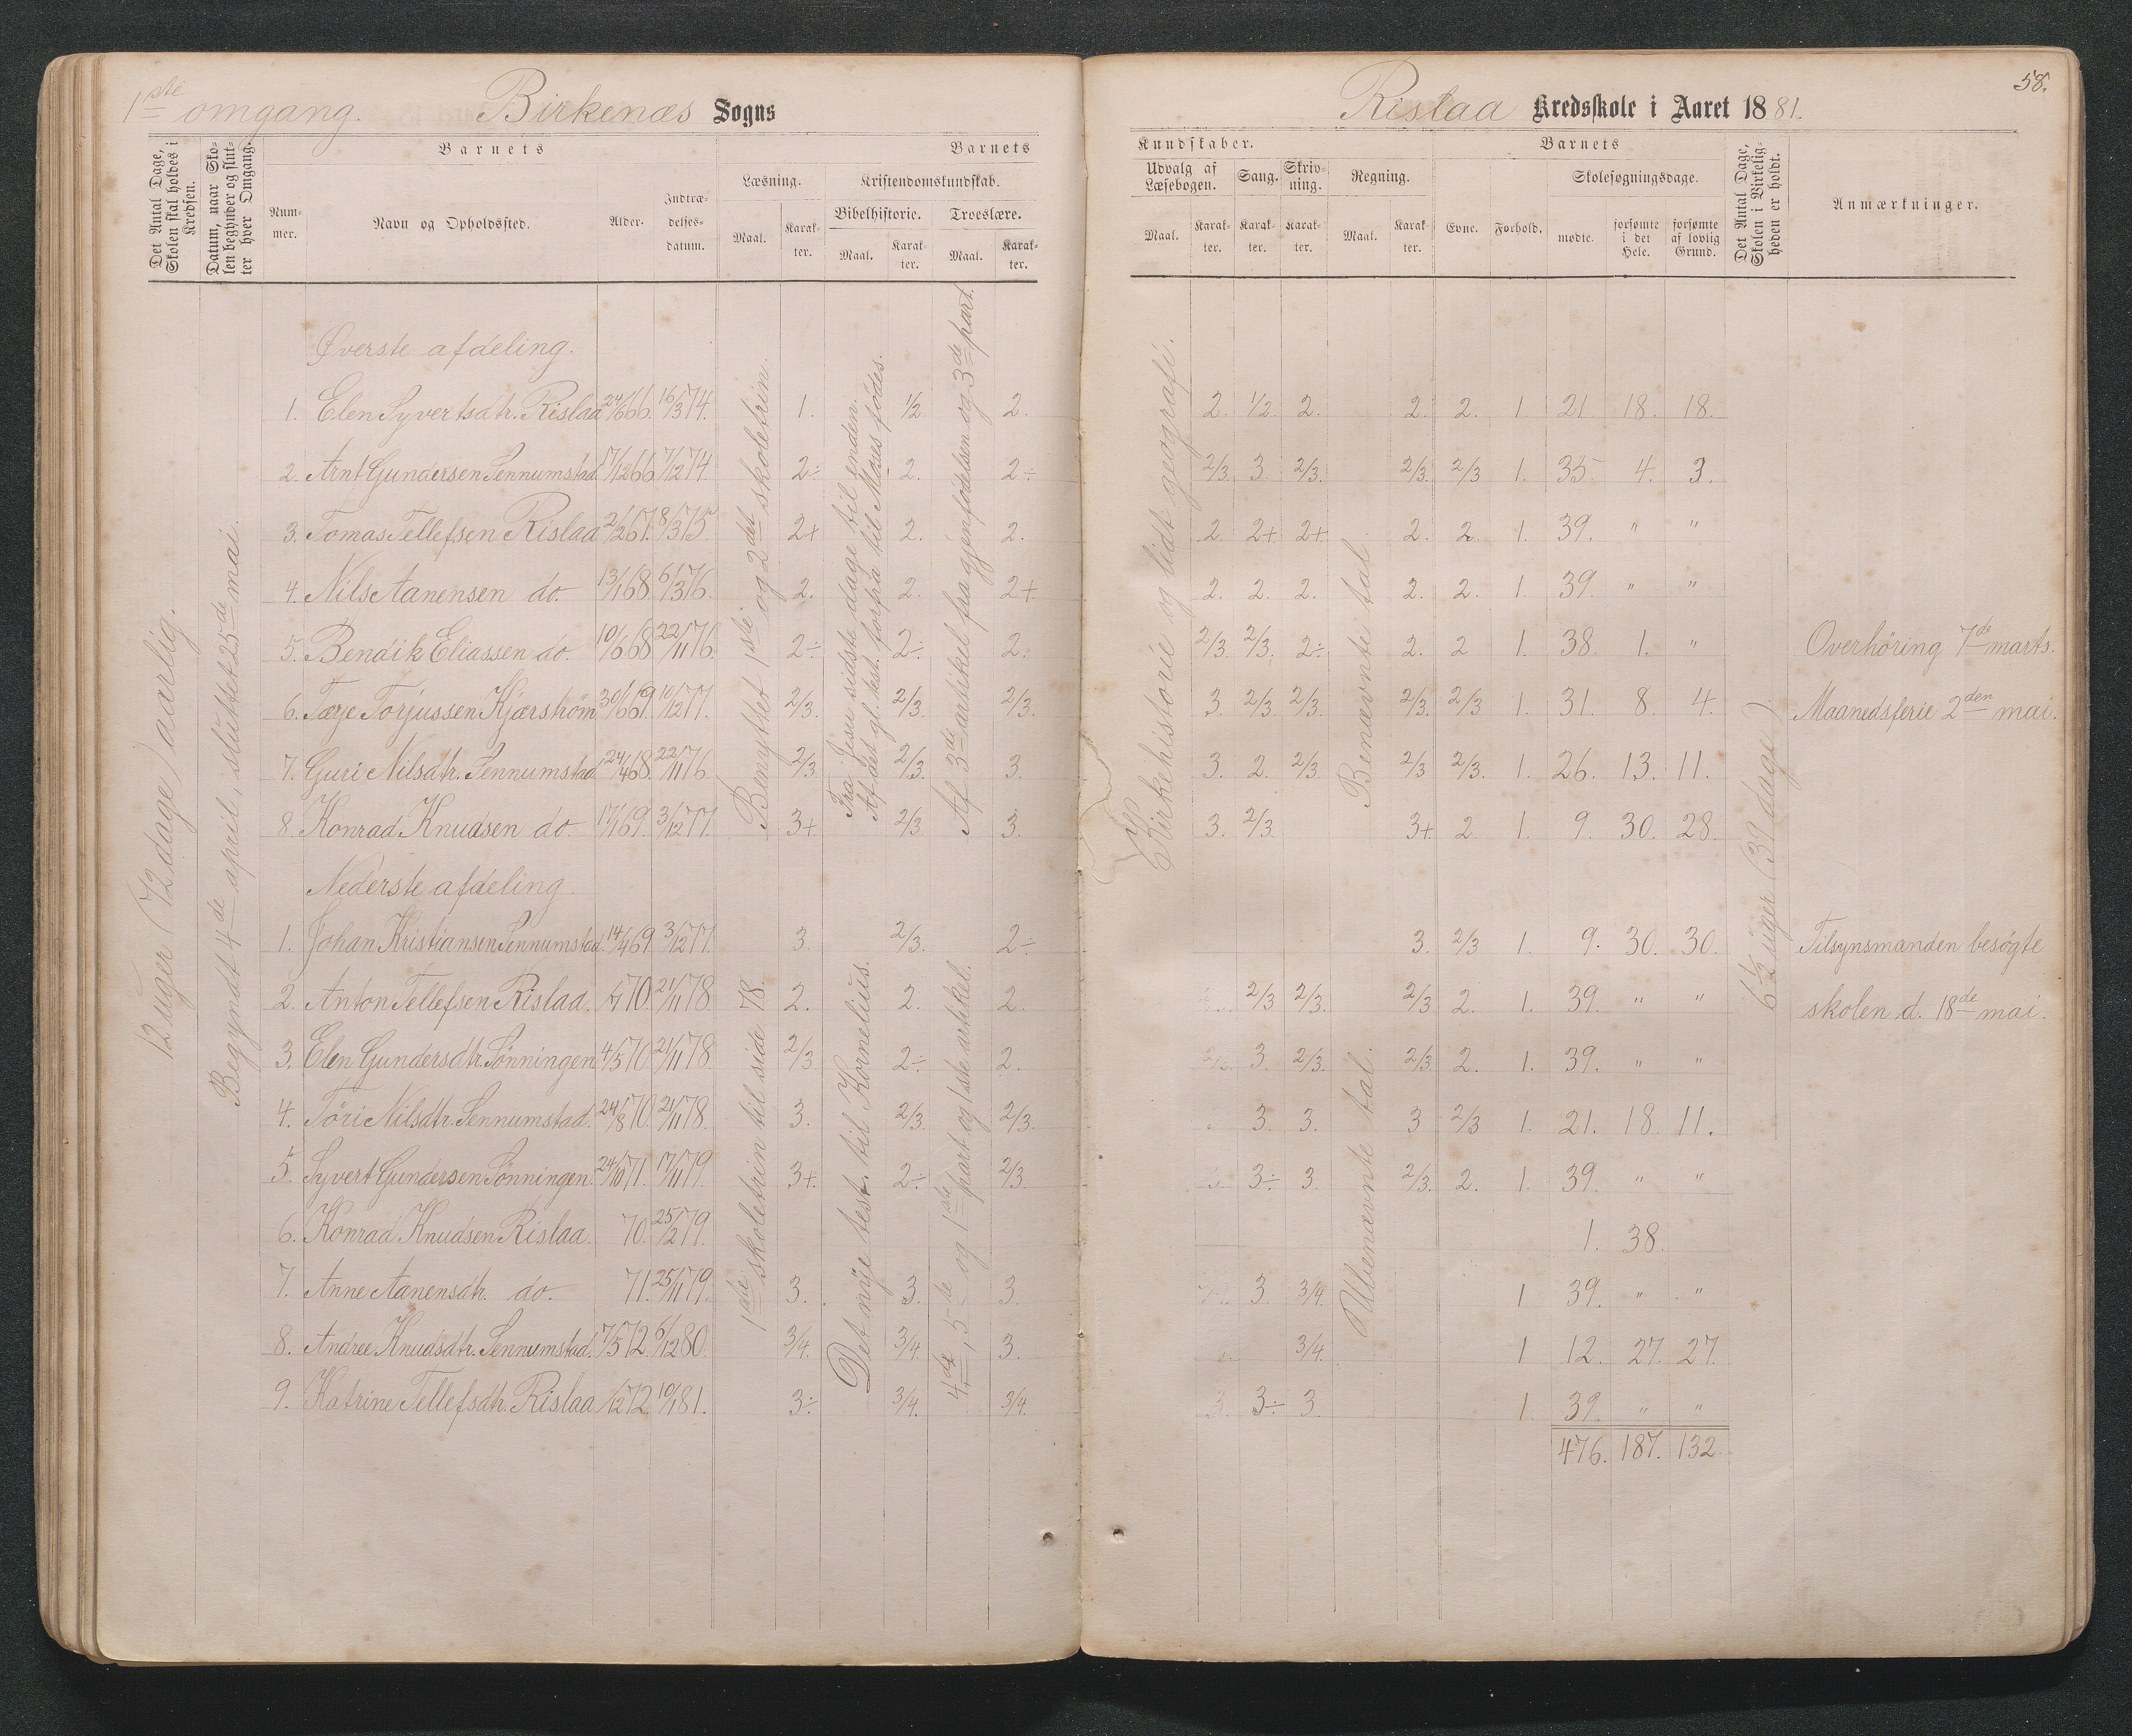 1ste omgang. Birkenæs Sogns
Det Antal Dage, Skolen skal holdes i Kredsen.
Datum, naar Skolen begynder og slutter hver Omgang.
Barnets
Nummer. Navn og Opholdssted. Alder. Indtrædelsesdatum.
Barnets
Læsning. Kristendomskundskab.
Maal. Karakter. Bibelhistorie. Troeslære.
Maal. Karakter. Maal. Karakter.
12 uger (72 dage) aarlig.
Begyndt 4de april, sluttet 25de mai.
Øverste afdeling.
1. Elen Syvertsdtr. Rislaa 24/6 66. 16/3 74. 1. 1/2 2.
2. Arnt Gundersen Sennumstad 17/12 66 7/12 74. 2÷ 2. 2÷
3. Tomas Tellefsen Rislaa 2/2 67. 8/3 75. 2+ 2. 2.
4. Nils Aanensen do. 13/1 68. 6/3 76. 2. 2. 2+
5. Bendik Eliassen do. 10/6 68 22/11 76. 2÷ 2÷ 2.
6. Tarje Torjussen Kjærshöm 30/6 69. 10/12 77. 2/3. 2/3. 2/3.
7. Guri Nilsdtr. Sennumstad 24/4 68. 22/11 76. 2/3. 2/3. 3.
8. Konrad Knudsen do. 17/1 69. 3/12 77. 3+. 2/3 3.
Benyttet 1ste og 2det skoletrin.
Fra Jesu sidste dage til enden.
Af det gl. test. forfra til Moses fødes.
Af 3de artikel fra gjenfødelsen og 3de part.
Nederste afdeling
1. Johan Kristiansen Sennumstad. 14/4 69. 3/12 77. 3. 2/3. 2÷
2. Anton Tellefsen Rislaa. 70. 21/11 78. 2. 2. 2.
3. Elen Gundersdtr. Sønningen 4/5 70. 21/11 78. 2/3. 2÷ 2.
4. Töri Nilsdtr. Sennumstad. 24/8 70. 21/11 78. 3. 2/3. 2/3.
5. Syvert Gundersen Sønningen. 24/10 71. 17/11 79. 3+. 2÷ 2/3.
6. Konrad Knudsen Rislaa. 70. 25/2 79.
7. Anne Aanensdtr. do. 71. 25/11 79. 3. 3. 3.
8. Andree Knudsdtr. Sennumstad. 7/5 72. 6/12 80. 3/4. 3/4. 3.
9. Katrine Tellefsdtr. Rislaa /12 72. 10/1 81. 3÷ 3/4. 3/4.
1ste skoletrin til side 78.
Det nye test. til Kornelius.
4de, 5de og 1ste part og 1ste artikel.
58.
Rislaa Kredsskole i Aaret 1881.
Kundskaber. Barnets
Udvalg af Læsebogen. Sang. Skrivning. Regning. Skolesøgningsdage.
Maal. Karakter. Karakter. Karakter. Maal. Karakter. Evne. Forhold. mødte. forsømte i det Hele. forsømte af lovlig Grund.
Det Antal Dage, Skolen i Virkeligheden er holdt.
Anmærkninger.
Kirkehistorie og lidt geografi.
Benævnte tal
2. 1/2. 2. 2. 2. 1. 21. 18. 18.
2/3. 3. 2/3. 2/3. 2/3 1. 35. 4. 3.
2. 2+. 2+. 2. 2. 1. 39. " "
2. 2. 2. 2. 2. 1. 39. " "
2/3. 2/3. 2÷ 2. 2 1. 38. 1. " Overhöring 7de marts.
3. 2/3. 2/3. 2/3. 2/3 1. 31. 8. 4. Maanedsferie 2den mai.
3. 2. 2/3. 2/3 2/3. 1. 26. 13. 11.
3. 2/3. 3+. 2. 1. 9. 30. 28.
6 1/2 uger (39 dage).
Ubenævnte tal.
3. 2/3 1. 9. 30. 30. Tilsynsmanden besøgte
2/3 2/3. 2/3 2. 1. 39. " " skolen d. 18de mai.
3. 2/3. 2/3. 2. 1. 39. " "
3. 3. 3 2/3 1. 21. 18. 11.
3÷ 3. 2/3. 2. 1. 39. " "
1. 38.
3. 3/4. 1 39. " "
3/4. 1 12. 27. 27.
3. 3÷ 3. 1. 39. " "
476. 187. 132